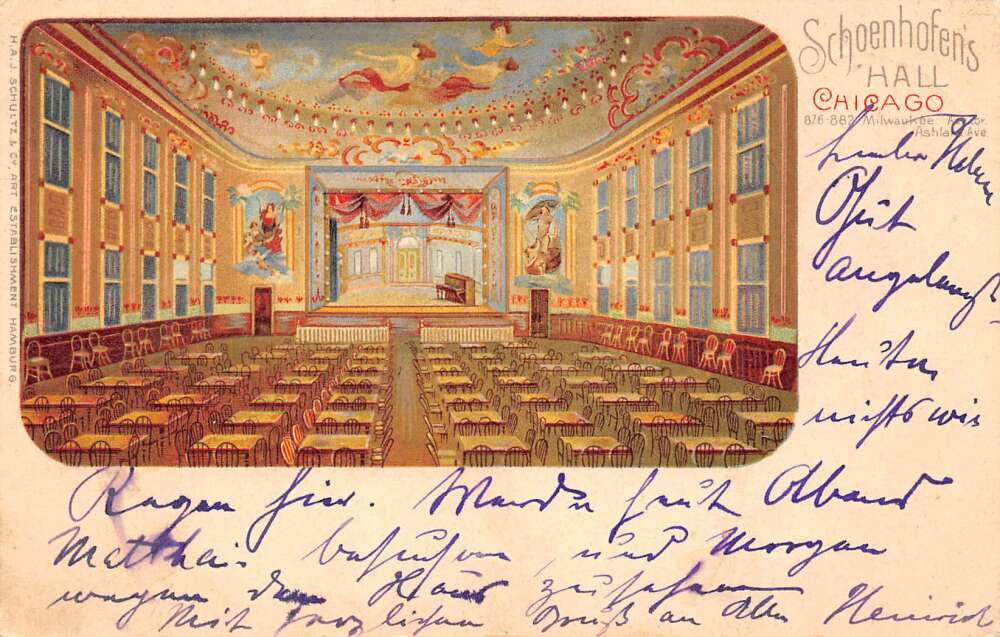 Schoenhofen's
HALL
CHICAGO
876-882 Milwaukee Av. Cor.
Ashland Ave.
H. A. J. SCHULTZ & Co., ART ESTABLISHMENT HAMBURG
Gut
angelangt.
Heute
nichts wie
Regen hier. Werde heut Abend
Matthei besuchen und Morgen
wegen dem Haus zusehen
Mit herzlichen Gruß an Alle Heinrich